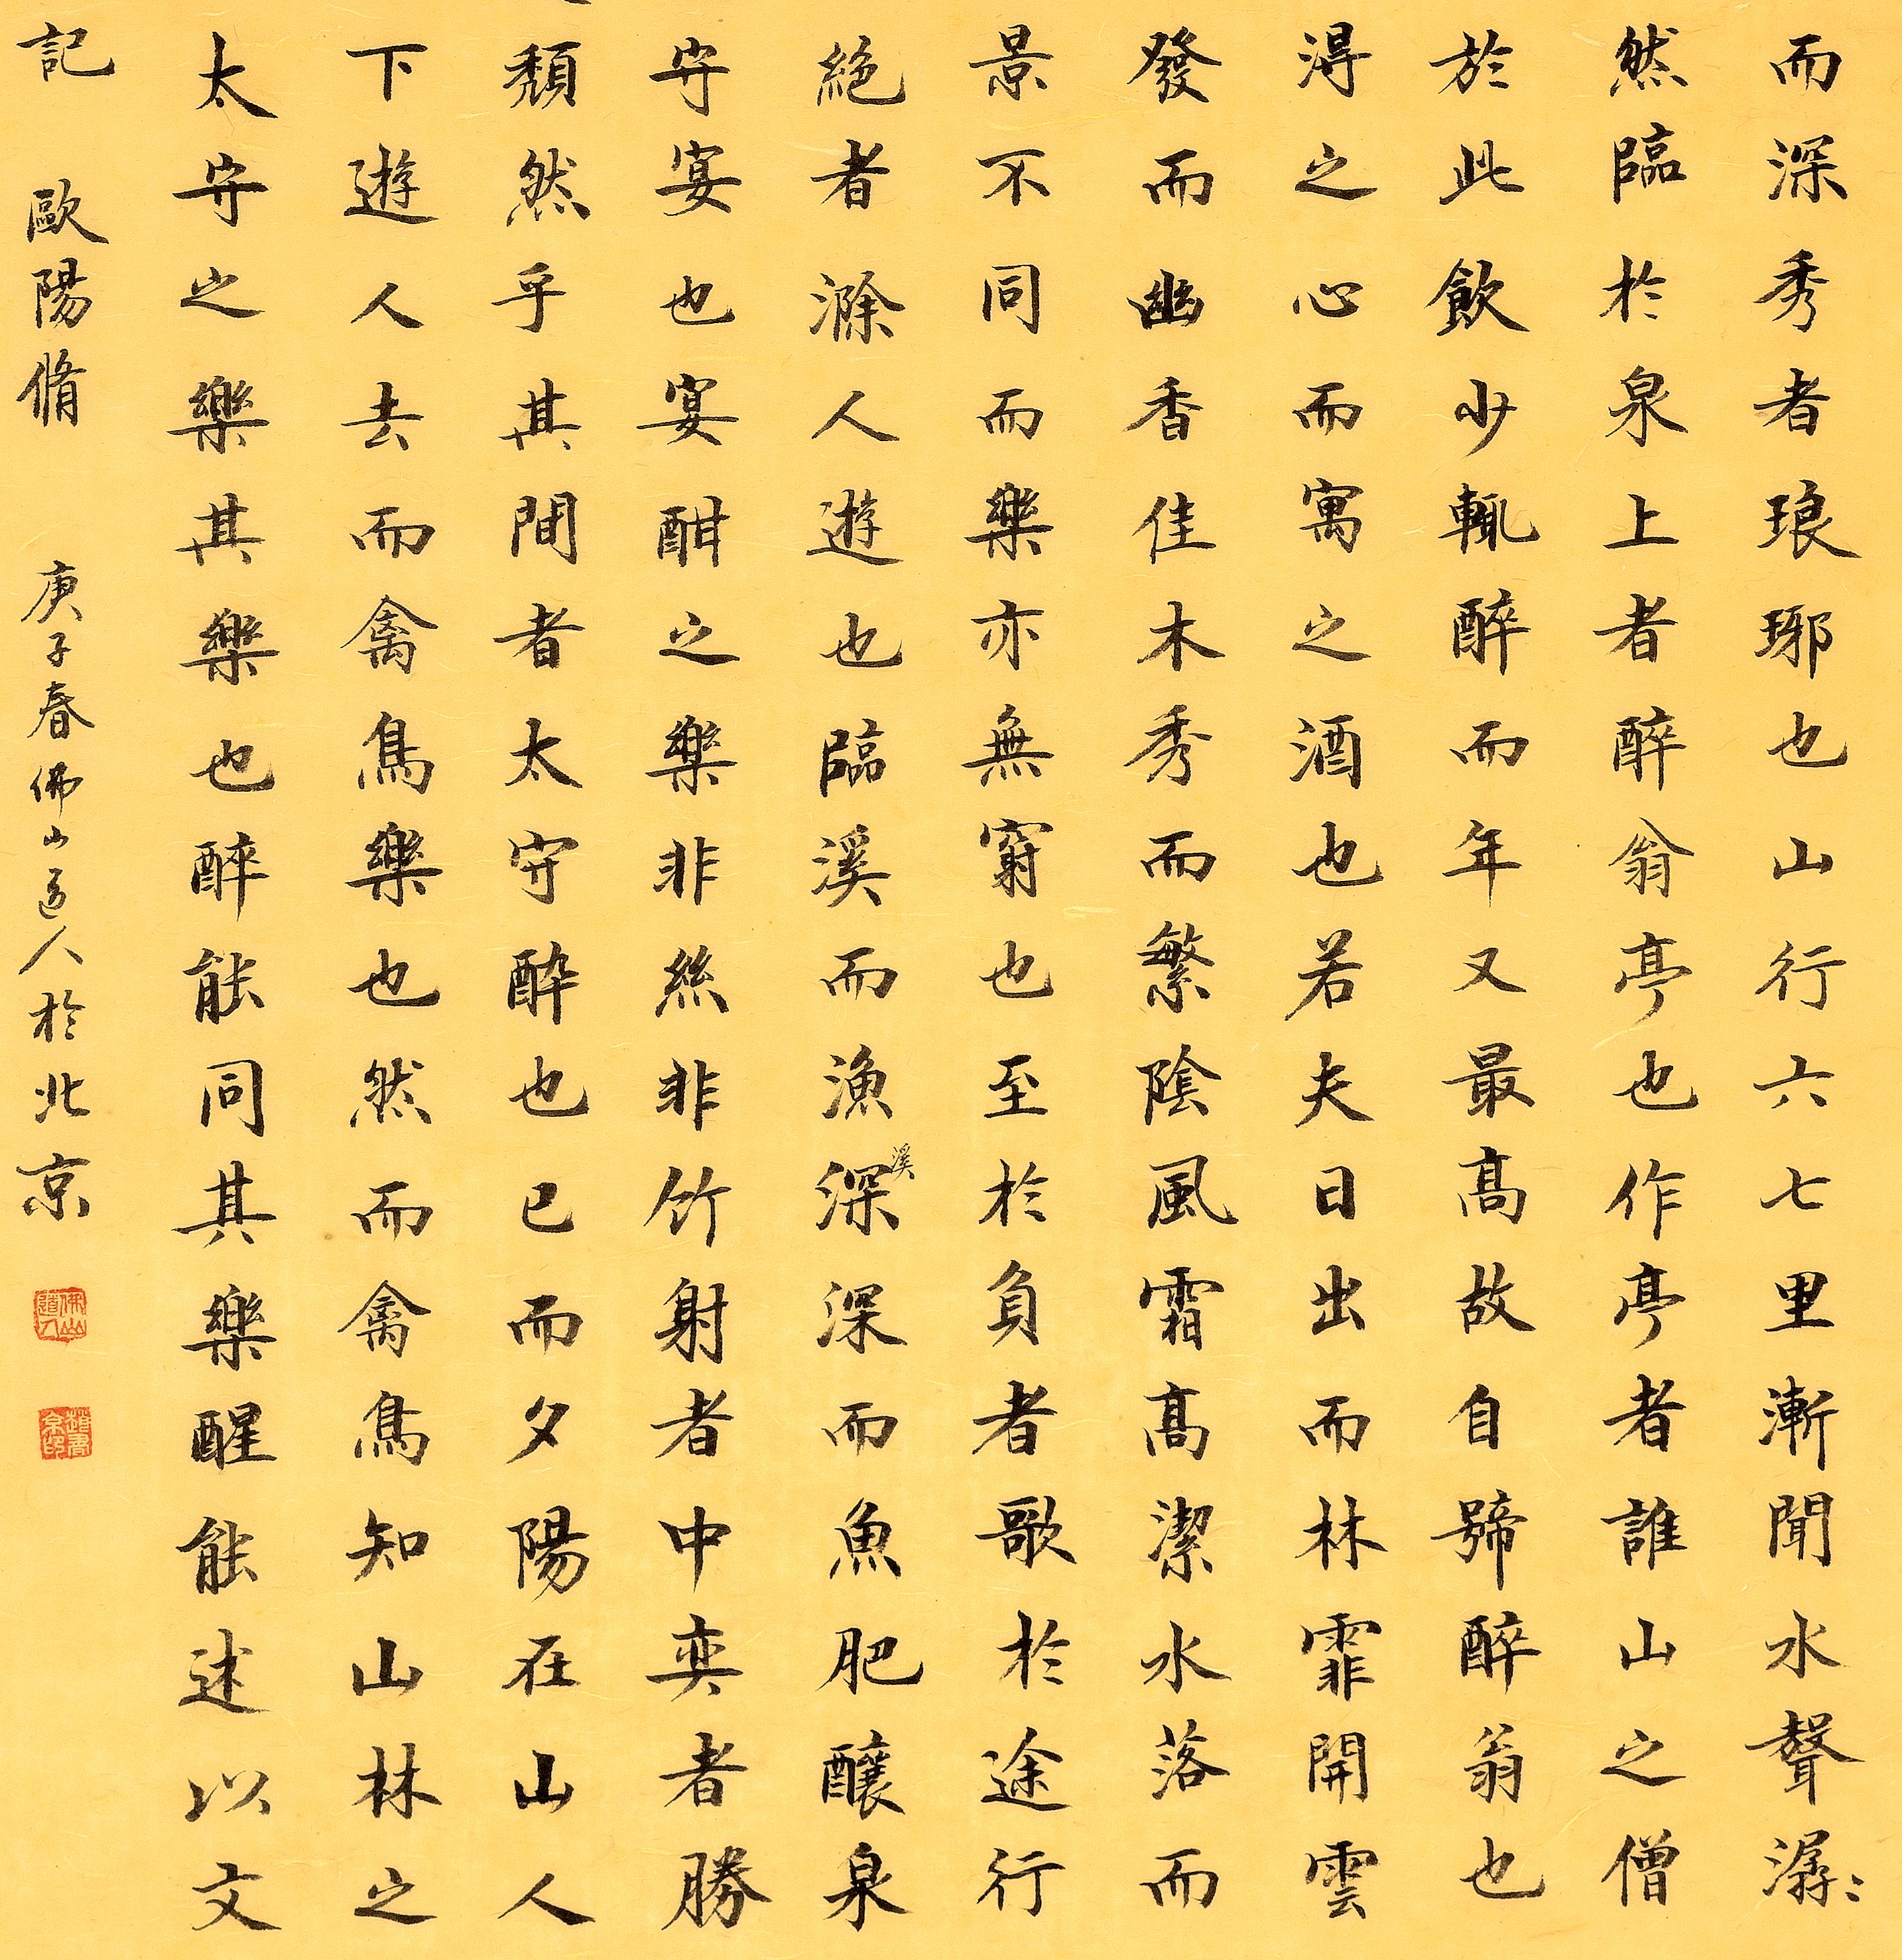 而深秀者琅琊也山行六七里漸聞水聲潺〻
然臨於泉上者醉翁亭也作亭者誰山之僧
於此飲少輒醉而年又最高故自號醉翁也
得之心而寓之酒也若夫日出而林霏開雲
發而幽香佳木秀而繁陰風霜高潔水落而
景不同而樂亦無窮也至於負者歌於途行
絕者滁人遊也臨溪而漁深溪深而魚肥釀泉
守宴也宴酣之樂非絲非竹射者中奕者勝
頹然乎其間者太守醉也已而夕陽在山人
下遊人去而禽鳥樂也然而禽鳥知山林之
太守之樂其樂也醉能同其樂醒能述以文
記 歐陽脩 庚子春佛山道人於北京
佛山道人